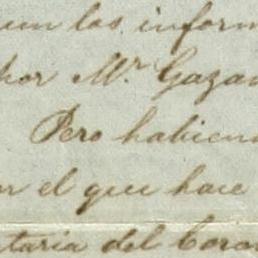 un los inform
por Mr. Gazan
Pero habien
n el que hace
taria del Coro